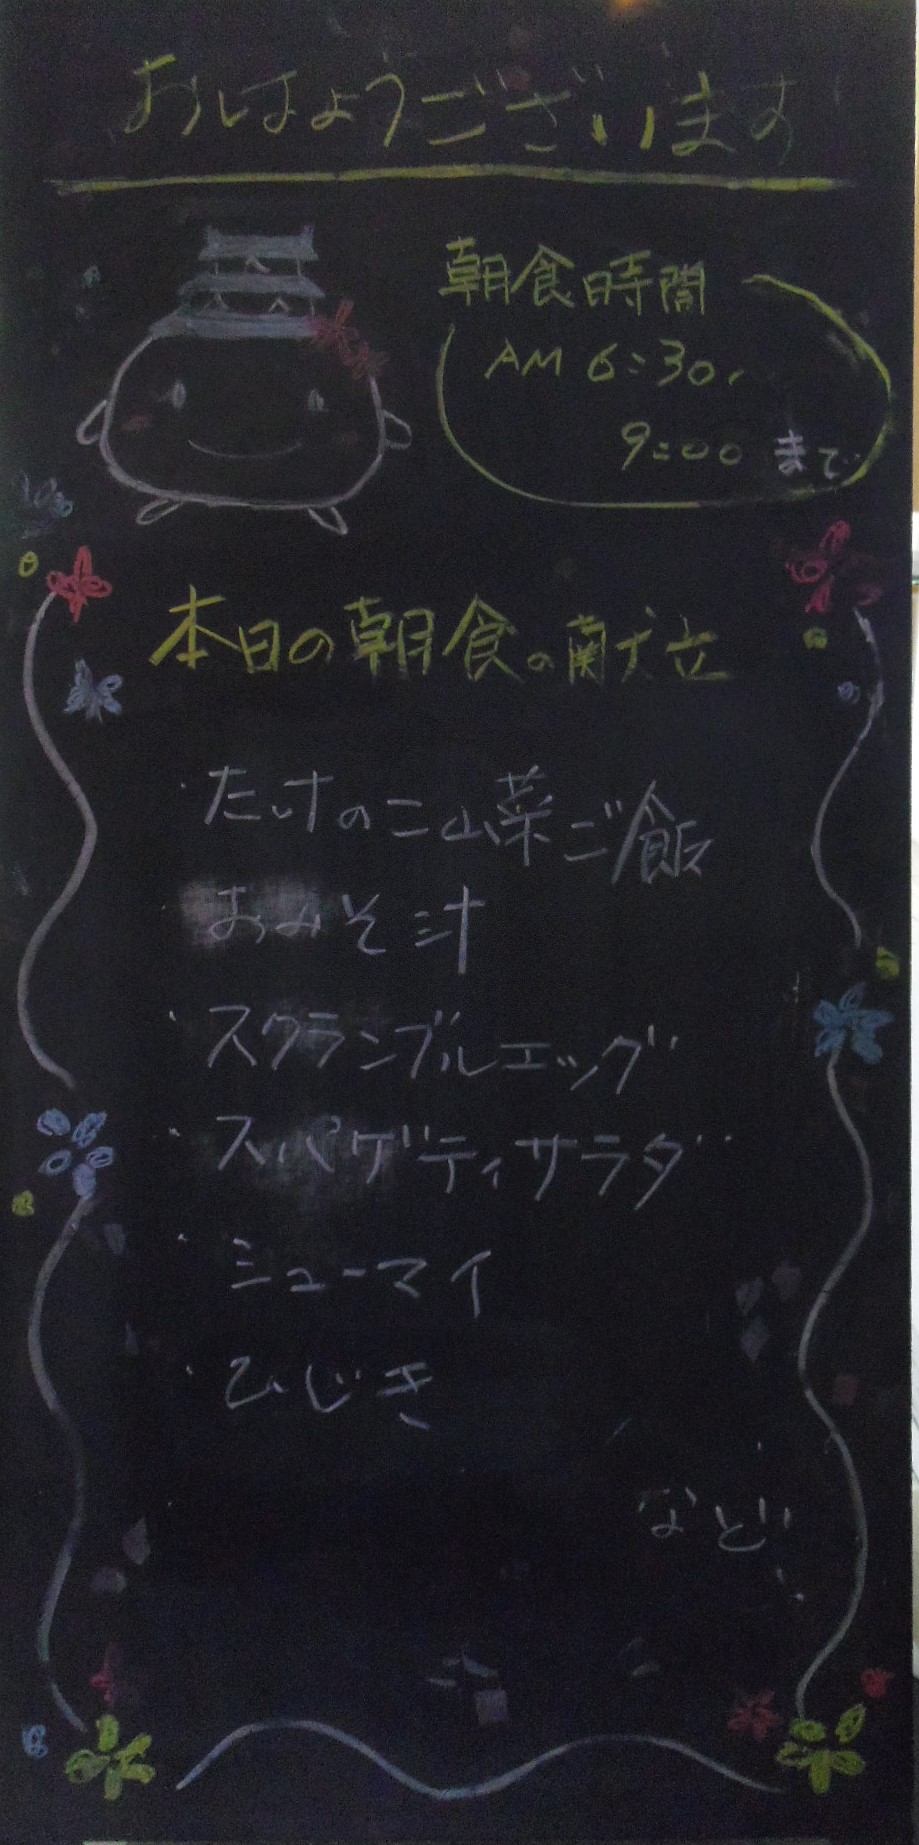 おはようございます
朝食時間
AM 6:30〜
9:00 まで
本日の朝食の献立
・たけのこ山菜ご飯
おみそ汁
・スクランブルエッグ
・スパゲティサラダ
・シューマイ
・ひじき
など